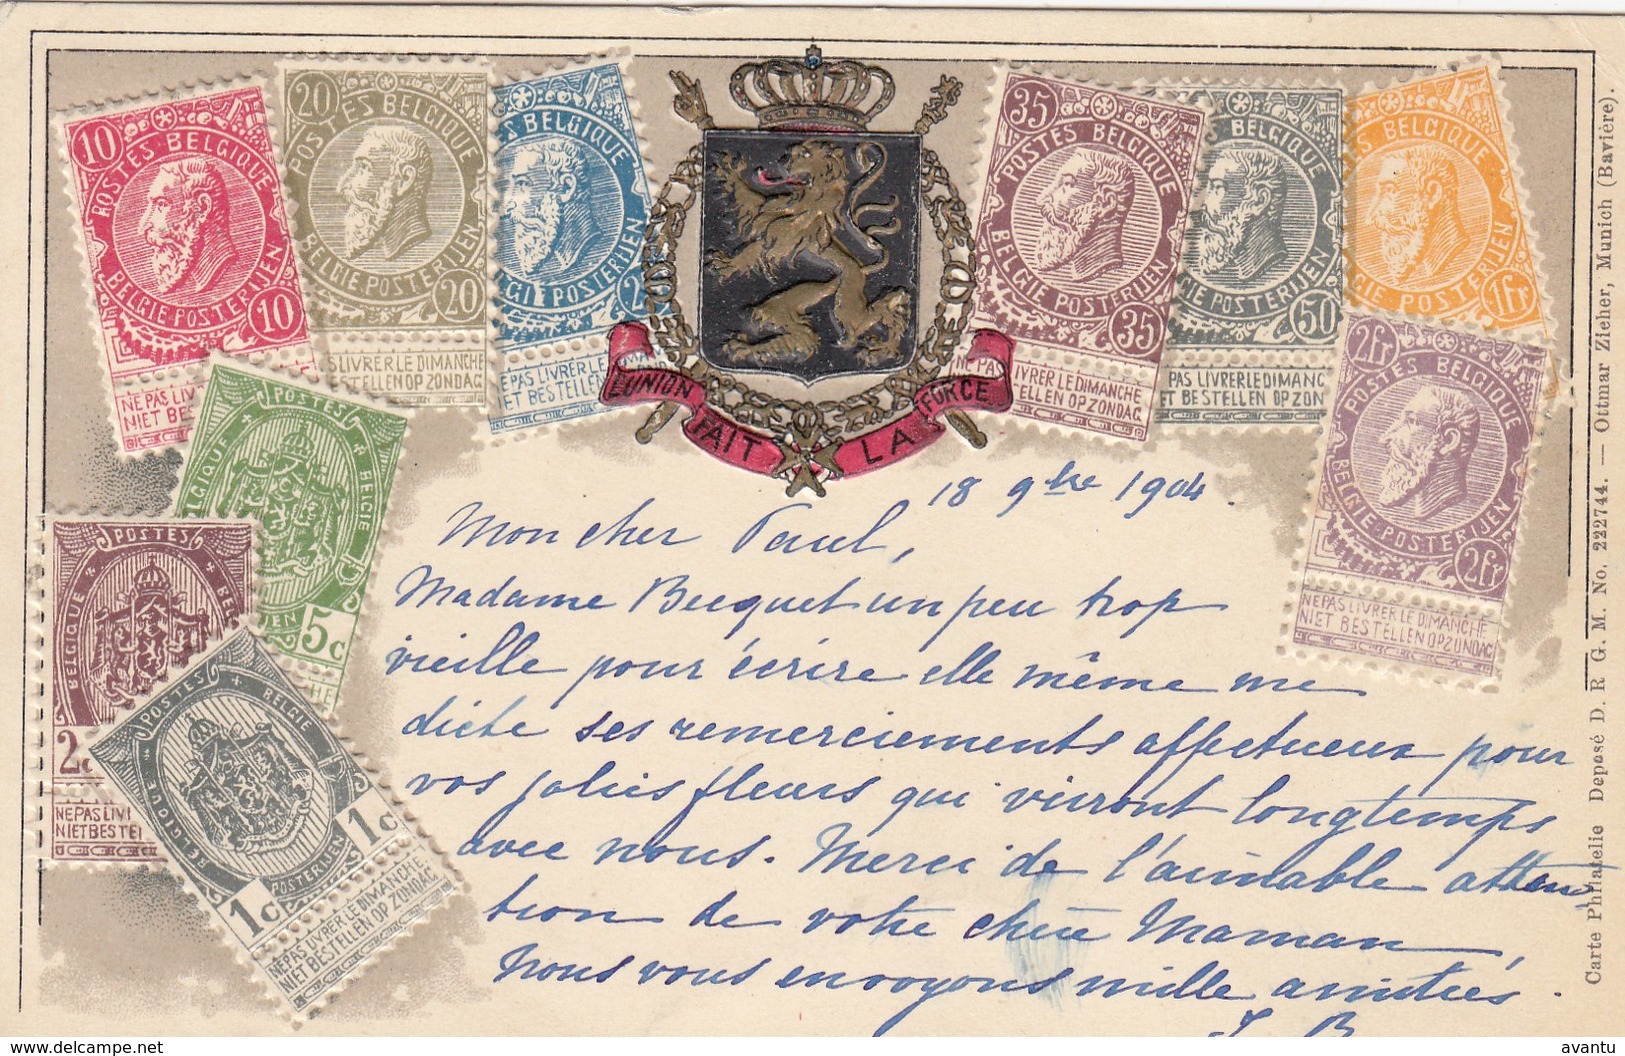 10
POSTES BELGIQUE
BELGIE POSTERIJEN
10
NE PAS LIV
NIET BES
20
POSTES BELGIQUE
BELGIE POSTERIJEN
20
S LIVRER LE DIMANCHE
STELLEN OP ZONDAG
ES BELGIQUE
GIE POSTERIJEN
2
E PAS LIVRER LE DIMAN
ET BESTELLEN
L'UNION FAIT LA FORCE
35
POSTES BELGIQUE
BELGIE POSTERIJEN
35
NE
VRER LE DIMANCHE
ELLEN OP ZONDAG
BELGIQUE
POSTERIJEN
50
PAS LIVRER LE DIMANC
BESTELLEN OP ZON
S BELGIQUE
GIE POSTERIJEN
1fr
2fr
POSTES BELGIQUE
BELGIE POSTERIJEN
2fr
NE PAS LIVRER LE DIMANCHE
NIET BESTELLEN OP ZONDAG
POSTES
BELGIE
LGIQUE
IJEN
5c
CHE
POSTES
BELGIQUE
BEL
2c
NE PAS LIVI
NIET BESTEL
POSTES
BELGIE
BELGIQUE
POSTERIJEN
1c
1c
NE PAS LIVRER LE DIMANCHE.
NIET BESTELLEN OP ZONDAG.
18 9bre 1904.
Mon cher Paul,
Madame Becquet un peu trop
vieille pour écrire elle même me
dicte ses remerciements affectueux pour
vos jolies fleurs qui vivront longtemps
avec nous. Merci de l'aimable atten
tion de votre chère Maman
Nous vous envoyons mille amitiés.
J. B
Carte Philatelie Deposé D. R. G. M. No. 222744. — Ottmar Zieher, Munich (Bavière).
delcampe.net
avantu